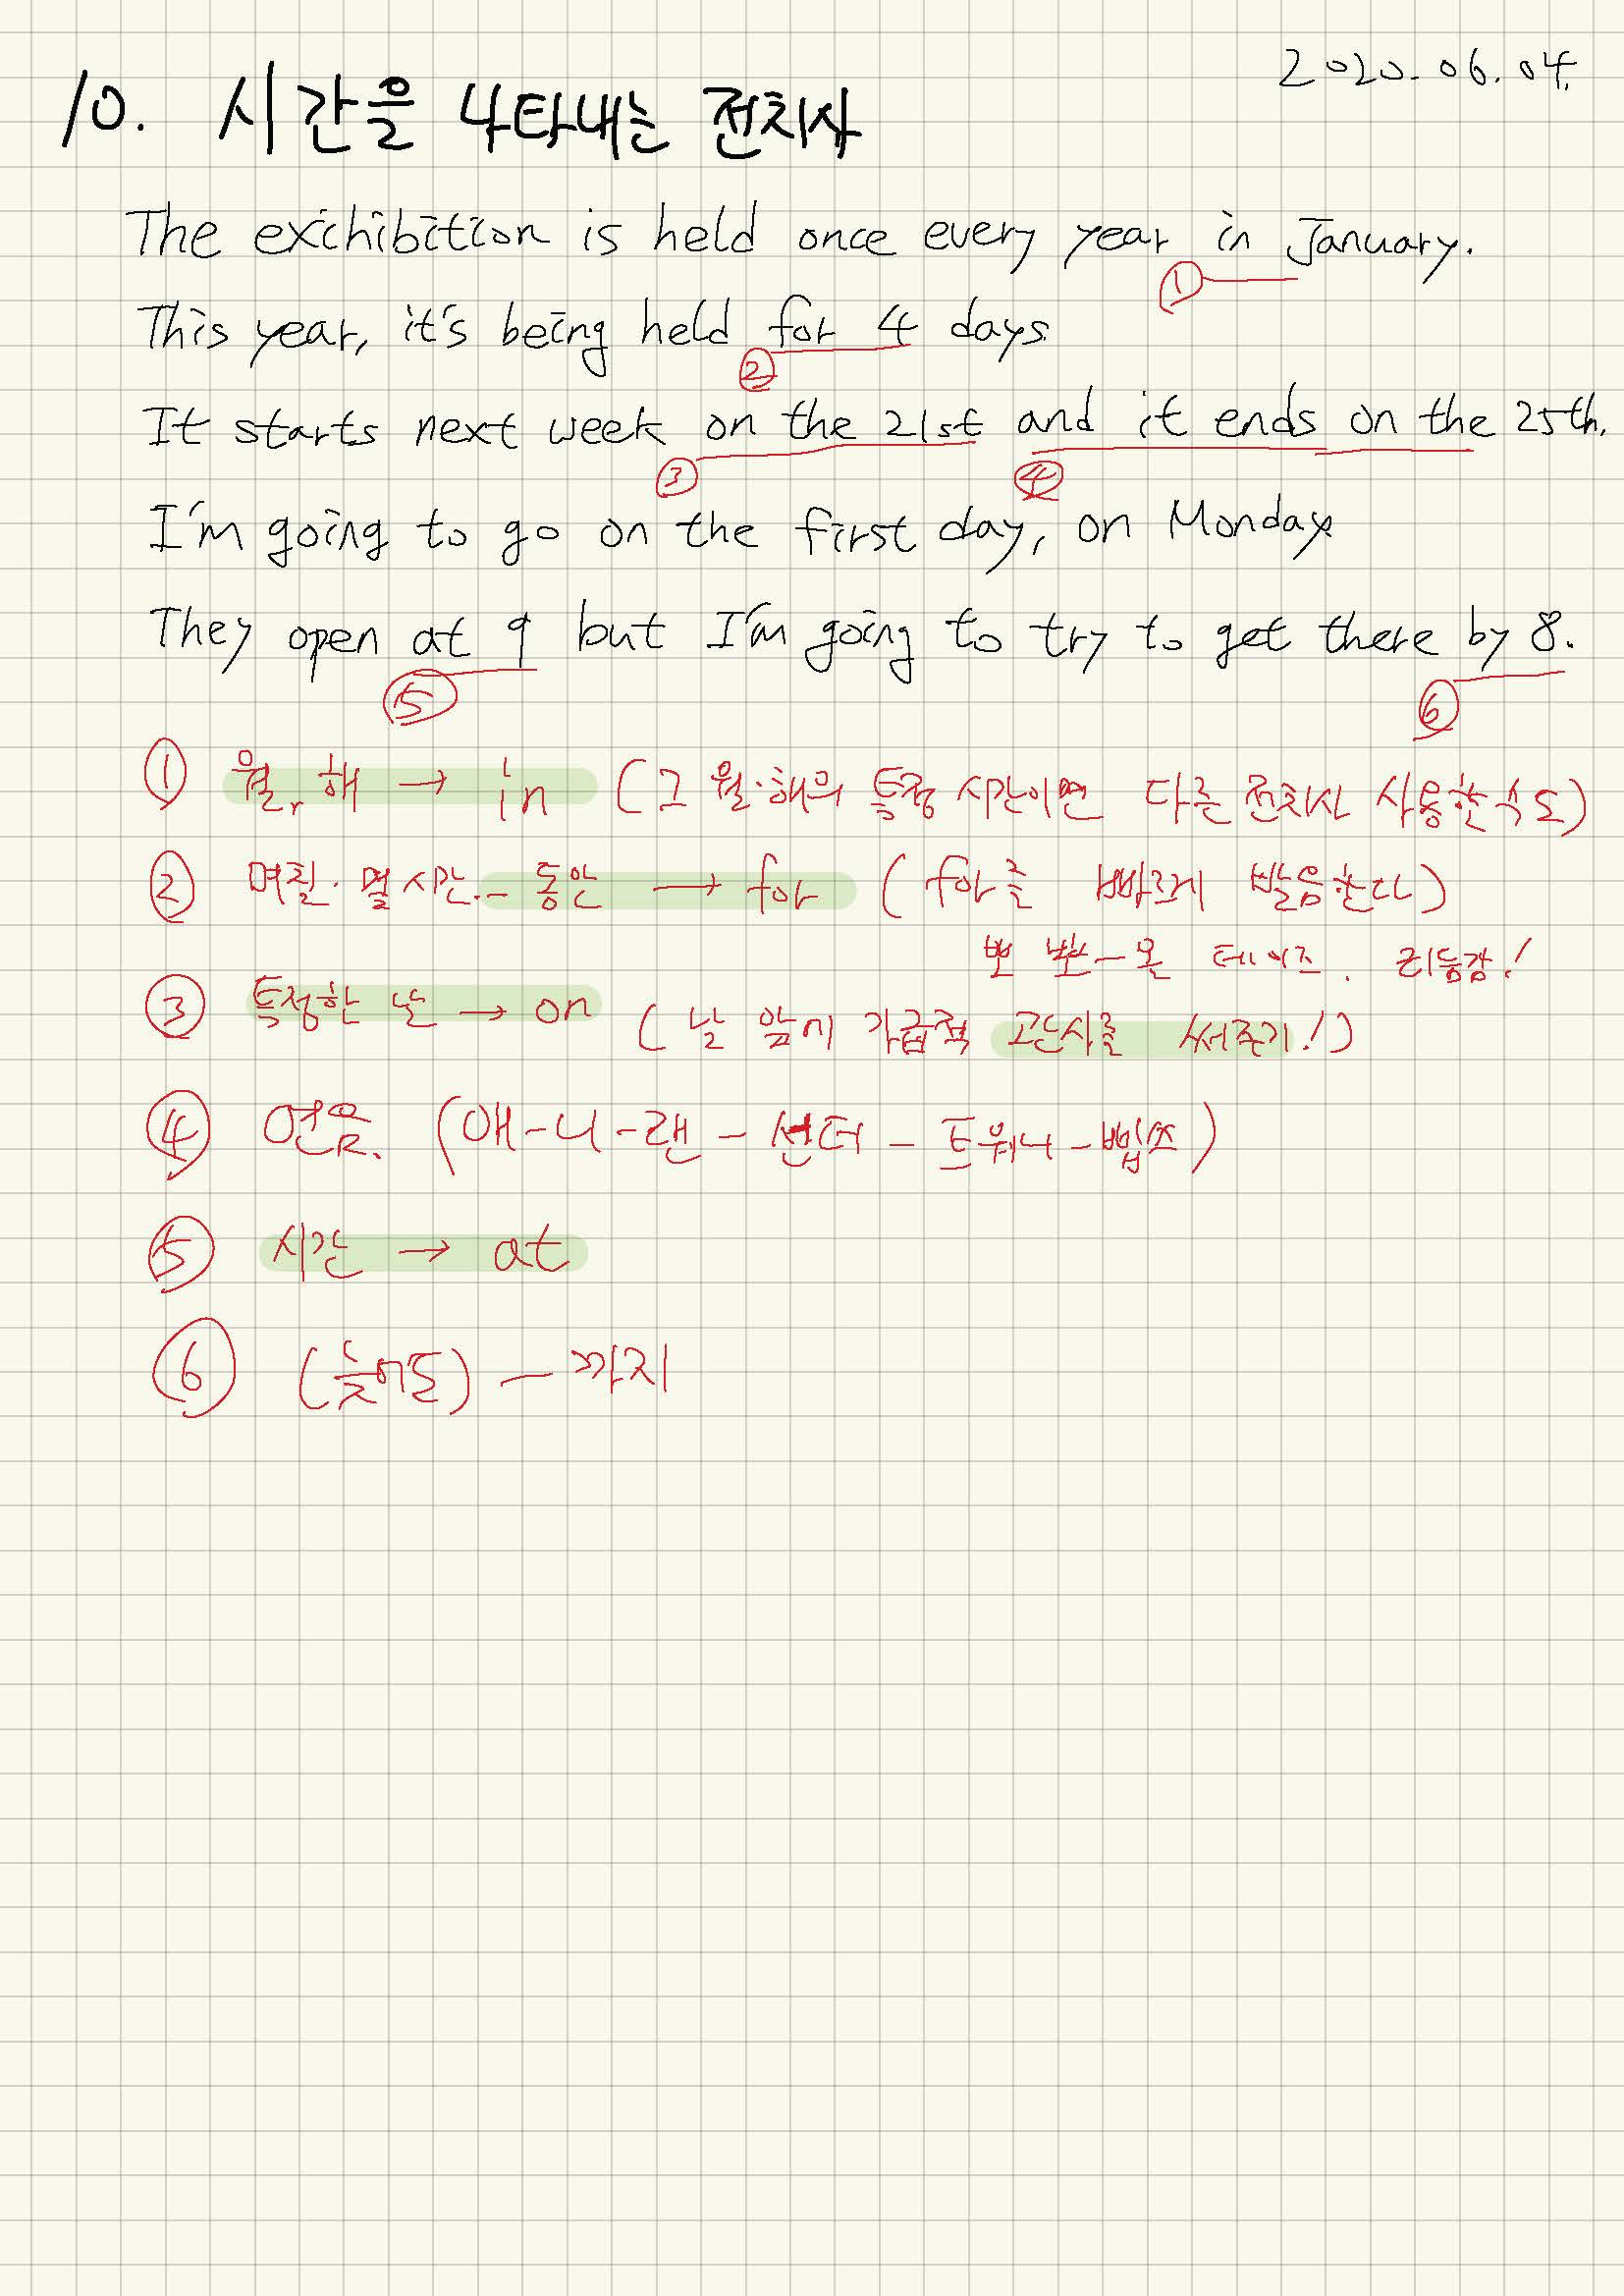 2020. 06. 04.
10. 시간을 나타내는 전치사
The exichibition is held once every year in January.
①
This year, it's being held for 4 days.
②
It starts next week on the 21st and it ends on the 25th.
③ ④
I'm going to go on the first day, on Monday.
They open at 9 but I'm going to try to get there by 8.
⑤ ⑥
① 월, 해 → in (그 월·해의 특정 시간이면 다른 전치사 사용할 수도)
② 며칠. 몇 시간.- 동안 → for (for를 빠르게 발음한다)
뽀 뽀-온 데이즈. 리듬감!
③ 특정한 날 → on (날 앞에 가급적 관사를 써주기!)
④ 연음. (애-니-랜-선더-트워니-삡쓰)
⑤ 시간 → at
⑥ (늦어도) -까지